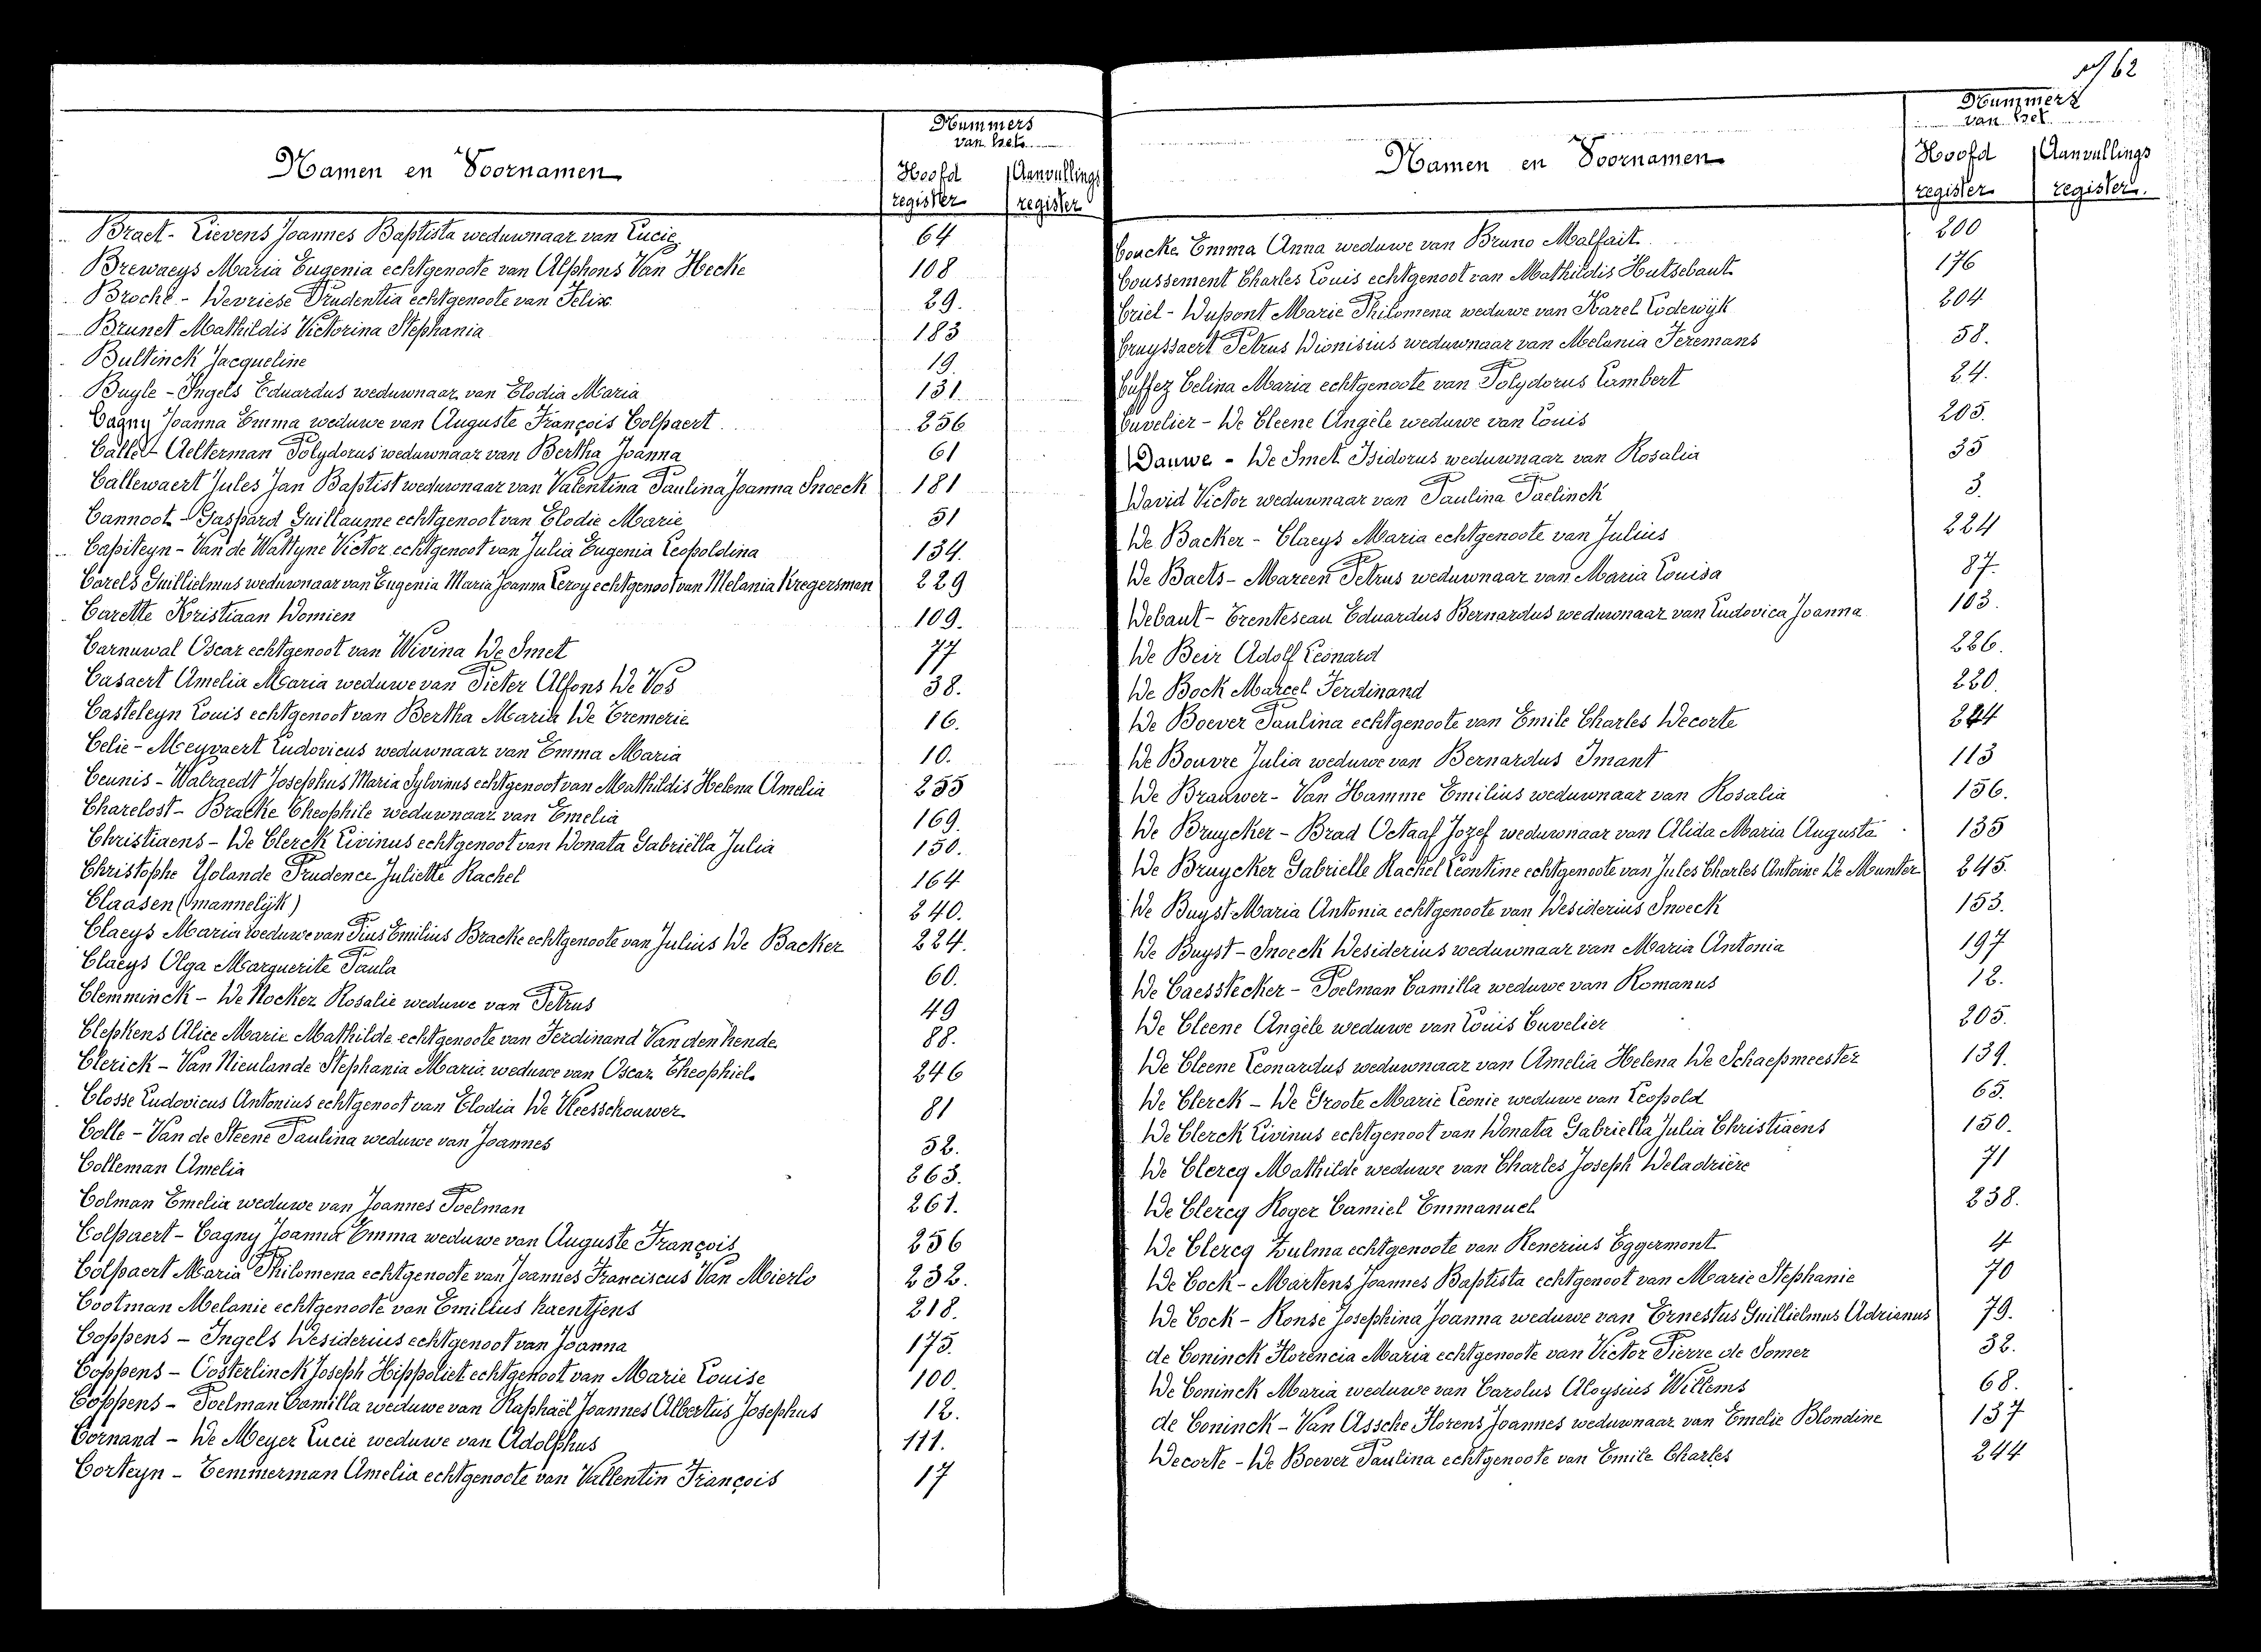 62
Nummers
van het
Namen en Voornamen
Hoofd
register
Aanvullings
register
Braet - Lievens Joannes Baptista weduwnaar van Lucie 64
Brewaeys Maria Eugenia echtgenoote van Alphons Van Hecke 108
Broché - Devriese Prudentia echtgenoote van Felix 29.
Brunet Mathildis Victorina Stephania 183
Bultinck Jacqueline 19.
Buyle - Ingels Eduardus weduwnaar van Elodia Maria 131.
Cagny Joanna Emma weduwe van Auguste François Colpaert 256
Calle - Aelterman Polydorus weduwnaar van Bertha Joanna 61
Callewaert Jules Jan Baptist weduwnaar van Valentina Paulina Joanna Snoeck 181
Cannoot - Gaspard Guillaume echtgenoot van Elodie Marie 51
Capiteyn - Van de Wattyne Victor echtgenoot van Julia Eugenia Leopoldina 134.
Carels Guillielmus weduwnaar van Eugenia Maria Joanna Leroy echtgenoot van Melania Kregersman 229
Carette Kristiaan Domien 109.
Carnuwal Oscar echtgenoot van Wivina De Smet 77
Casaert Amelia Maria weduwe van Pieter Alfons De Vos 38.
Casteleyn Louis echtgenoot van Bertha Maria De Tremerie 16.
Celie - Meyvaert Ludovicus weduwnaar van Emma Maria 10.
Ceunis - Walraedt Josephus Maria Sylvinus echtgenoot van Mathildis Helena Amelia 255
Charelost - Bracke Theophile weduwnaar van Emelia 169.
Christiaens - De Clerck Livinus echtgenoot van Donata Gabriëlla Julia 150.
Christophe Yolande Prudence Juliette Rachel 164
Claasen (mannelijk) 240.
Claeys Maria weduwe van Pius Emilius Bracke echtgenoote van Julius De Backer 224.
Claeys Olga Marguerite Paula 60.
Clemminck - De Nocker Rosalie weduwe van Petrus 49
Clepkens Alice Marie Mathilde echtgenoote van Ferdinand Van den hende 88.
Clerick - Van Nieulande Stephania Maria weduwe van Oscar Theophiel 246
Closse Ludovicus Antonius echtgenoot van Elodia De Vleesschouwer 81
Colle - Van de Steene Paulina weduwe van Joannes 52.
Colleman Amelia 263.
Colman Emelia weduwe van Joannes Poelman 261.
Colpaert - Cagny Joanna Emma weduwe van Auguste François 256
Colpaert Maria Philomena echtgenoote van Joannes Franciscus Van Mierlo 232.
Cootman Melanie echtgenoote van Emilius haentjens 218.
Coppens - Ingels Desiderius echtgenoot van Joanna 175.
Coppens - Oosterlinck Joseph Hippoliet echtgenoot van Marie Louise 100.
Coppens - Poelman Camilla weduwe van Raphaël Joannes Albertus Josephus 12.
Cornand - De Meyer Lucie weduwe van Adolphus 111.
Corteyn - Temmerman Amelia echtgenoote van Vallentin François 17
Nummers
van het
Namen en Voornamen
Hoofd
register
Aanvullings
register.
Coucke Emma Anna weduwe van Bruno Malfait 200
Coussement Charles Louis echtgenoot van Mathildis Hutsebaut 176
Criel - Dupont Marie Philomena weduwe van Karel Lodewijk 204
Cruyssaert Petrus Dionisius weduwnaar van Melania Feremans 58.
Cuffez Celina Maria echtgenoote van Polydorus Lambert 24.
Cuvelier - De Cleene Angèle weduwe van Louis 205.
Dauwe - De Smet Isidorus weduwnaar van Rosalia 35
David Victor weduwnaar van Paulina Paelinck 3.
De Backer - Claeys Maria echtgenoote van Julius 224
De Baets - Mareen Petrus weduwnaar van Maria Louisa 87.
Debaut - Trenteseau Eduardus Bernardus weduwnaar van Ludovica Joanna 103.
De Beir Adolf Leonard 226.
De Bock Marcel Ferdinand 220.
De Boever Paulina echtgenoote van Emile Charles Decorte 244
De Bouvre Julia weduwe van Bernardus Imant 113
De Brauwer - Van Hamme Emilius weduwnaar van Rosalia 156.
De Bruycker - Brad Octaaf Jozef weduwnaar van Alida Maria Augusta 135
De Bruycker Gabrielle Rachel Leontine echtgenoote van Jules Charles Antoine De Munter 245.
De Buyst Maria Antonia echtgenoote van Desiderius Snoeck 153.
De Buyst - Snoeck Desiderius weduwnaar van Maria Antonia 197
De Caesstecker - Poelman Camilla weduwe van Romanus 12.
De Cleene Angèle weduwe van Louis Cuvelier 205.
De Cleene Leonardus weduwnaar van Amelia Helena De Schaepmeester 139.
De Clerck - De Groote Marie Leonie weduwe van Leopold 65.
De Clerck Livinus echtgenoot van Donata Gabriella Julia Christiaens 150.
De Clercq Mathilde weduwe van Charles Joseph Deladrière 71
De Clercq Roger Camiel Emmanuel 238.
De Clercq Zulma echtgenoote van Renerius Eggermont 4
De Cock - Martens Joannes Baptista echtgenoot van Marie Stephanie 70
De Cock - Ronse Josephina Joanna weduwe van Ernestus Guillielmus Adrianus 79.
de Coninck Florencia Maria echtgenoote van Victor Pierre de Somer 32.
De Coninck Maria weduwe van Carolus Aloysius Willems 68.
de Coninck - Van Assche Florens Joannes weduwnaar van Emelie Blondine 137
Decorte - De Boever Paulina echtgenoote van Emile Charles 244